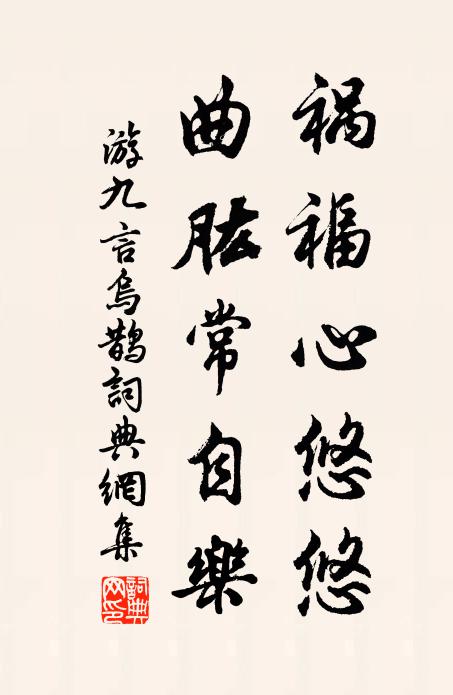 祸福心悠悠
曲肱常自樂
游九言烏鵲詞典網集
詞典網印